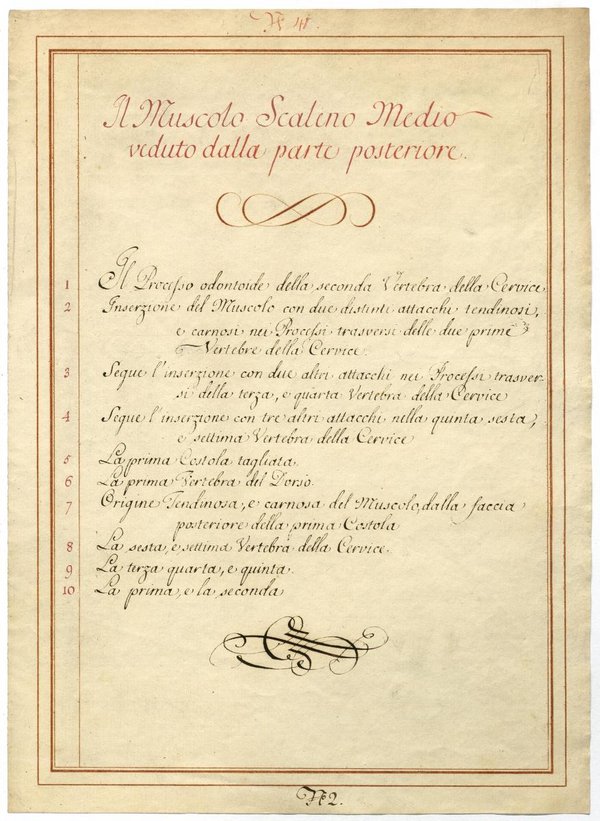 N 41
Il Muscolo Scaleno Medio
veduto dalla parte posteriore.
1 Il Processo odontoide della seconda Vertebra della Cervice
2 Inserzione del Muscolo con due distinti attacchi tendinosi,
e carnosi nei Processi trasversi delle due prime
Vertebre della Cervice.
3 Segue l'inserzione con due altri attacchi nei Processi trasver-
si della terza, e quarta Vertebra della Cervice
4 Segue l'inserzione con tre altri attacchi nella quinta sesta,
e settima Vertebra della Cervice
5 La prima Costola tagliata.
6 La prima Vertebra del Dorso.
7 Origine Tendinosa, e carnosa del Muscolo, dalla faccia
posteriore della prima Costola
8 La sesta, e settima Vertebra della Cervice.
9 La terza quarta, e quinta.
10 La prima, e la seconda
N 2.